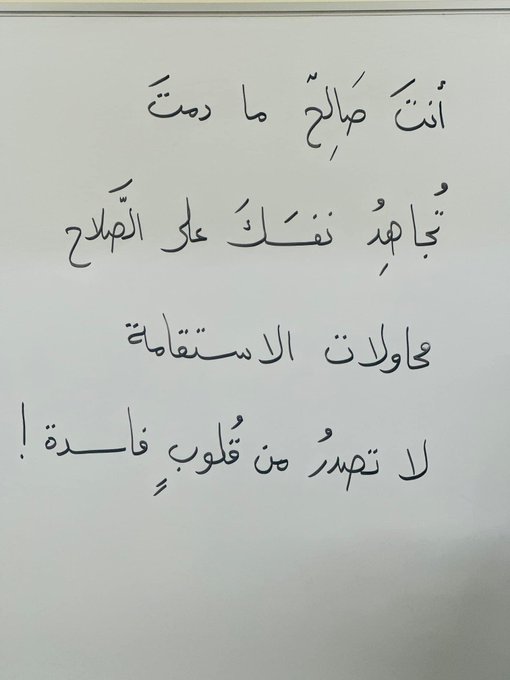 أنتَ صَالِحٌ ما دمتَ
تُجاهِدُ نفسَكَ على الصَّلاح
محاولات الاستقامة
لا تصدرُ من قُلوبٍ فاسدة !